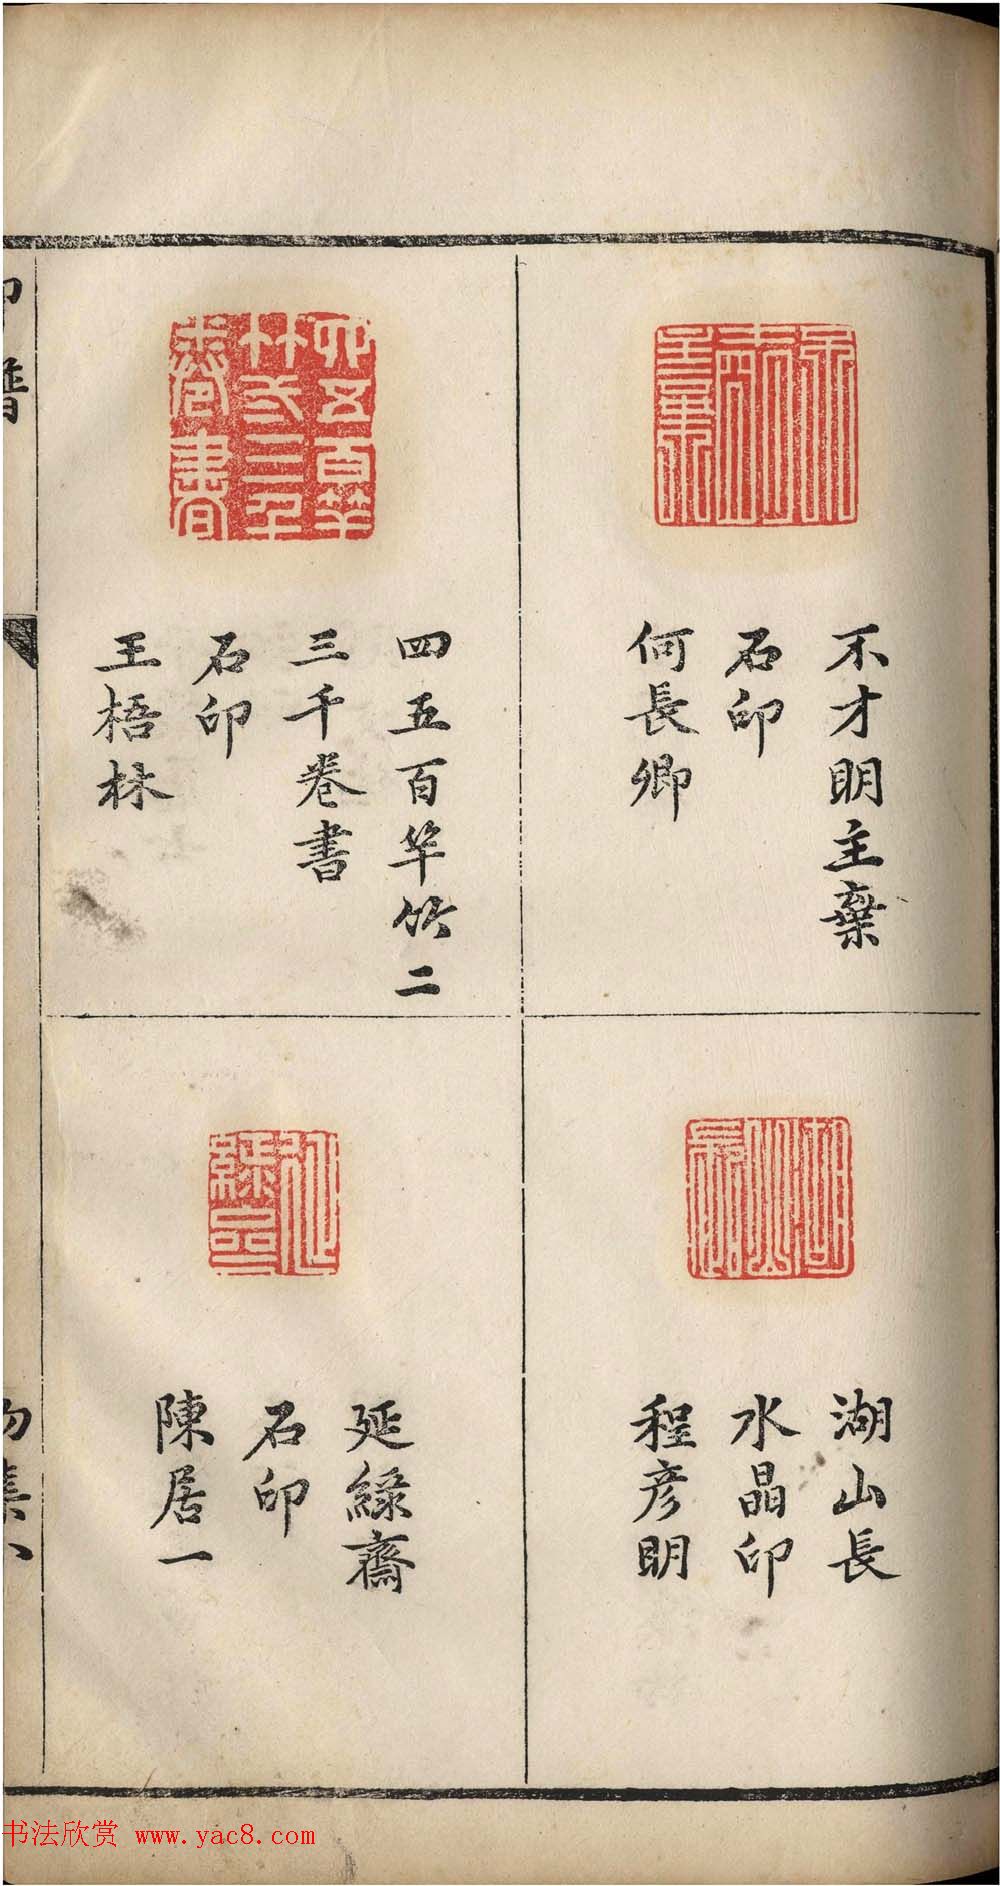 不才明主棄
石印
何長卿
湖山長
水晶印
程彥明
四五百竿竹二
三千卷書
石印
王梧林
延綠齋
石印
陳居一
书法欣赏 www.yac8.com